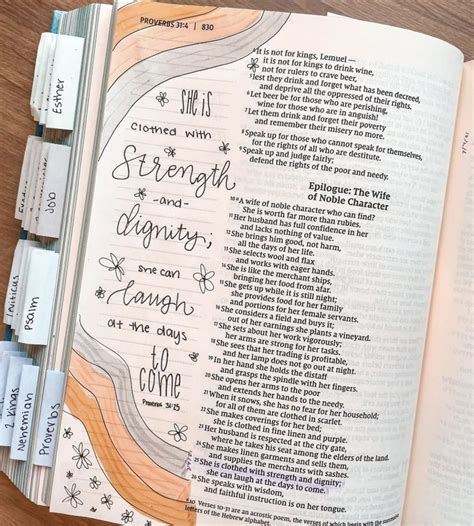 PROVERBS 31:4 | 830
Esther
Job
Leviticus
Psalm
2 Kings
Nehemiah
Proverbs
SHE IS
clothed with
Strength
-and-
dignity;
she can
laugh
at the days
to
come
Proverbs 31:25
4 It is not for kings, Lemuel —
it is not for kings to drink wine,
not for rulers to crave beer,
5 lest they drink and forget what has been decreed,
and deprive all the oppressed of their rights.
6 Let beer be for those who are perishing,
wine for those who are in anguish!
7 Let them drink and forget their poverty
and remember their misery no more.
8 Speak up for those who cannot speak for themselves,
for the rights of all who are destitute.
9 Speak up and judge fairly;
defend the rights of the poor and needy.
Epilogue: The Wife
of Noble Character
10 a A wife of noble character who can find?
She is worth far more than rubies.
11 Her husband has full confidence in her
and lacks nothing of value.
12 She brings him good, not harm,
all the days of her life.
13 She selects wool and flax
and works with eager hands.
14 She is like the merchant ships,
bringing her food from afar.
15 She gets up while it is still night;
she provides food for her family
and portions for her female servants.
16 She considers a field and buys it;
out of her earnings she plants a vineyard.
17 She sets about her work vigorously;
her arms are strong for her tasks.
18 She sees that her trading is profitable,
and her lamp does not go out at night.
19 In her hand she holds the distaff
and grasps the spindle with her fingers.
20 She opens her arms to the poor
and extends her hands to the needy.
21 When it snows, she has no fear for her household;
for all of them are clothed in scarlet.
22 She makes coverings for her bed;
she is clothed in fine linen and purple.
23 Her husband is respected at the city gate,
where he takes his seat among the elders of the land.
24 She makes linen garments and sells them,
and supplies the merchants with sashes.
25 She is clothed with strength and dignity;
she can laugh at the days to come.
26 She speaks with wisdom,
and faithful instruction is on her tongue.
a10 Verses 10-31 are an acrostic poem, the verses of which begin with
letters of the Hebrew alphabet.